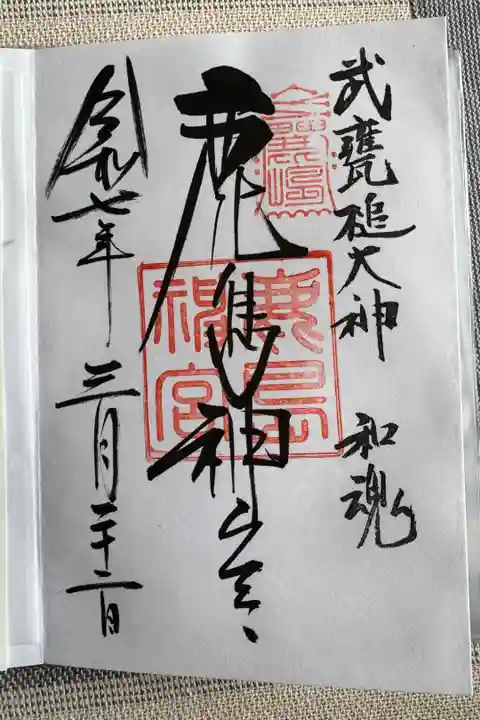 武甕槌大神 和魂
鹿島神宮
鹿島神宮
令和七年 三月二十二日